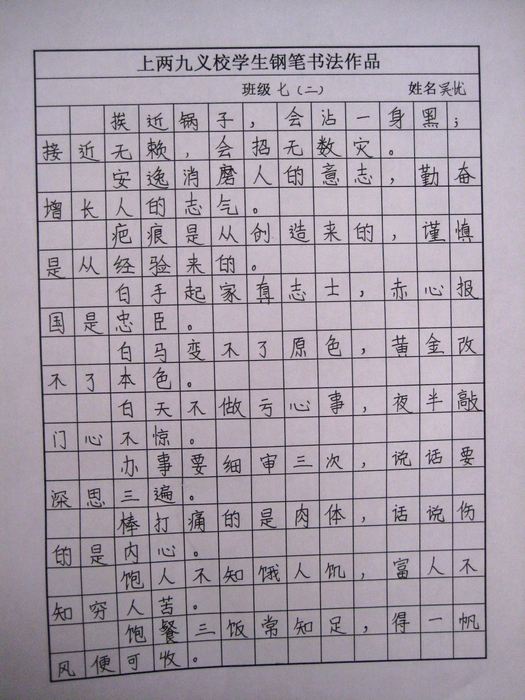 上两九义校学生钢笔书法作品
班级 七（二） 姓名 吴忧
挨近锅子，会沾一身黑；
接近无赖，会招无数灾。
安逸消磨人的意志，勤奋
增长人的志气。
疤痕是从创造来的，谨慎
是从经验来的。
白手起家真志士，赤心报
国是忠臣。
白马变不了原色，黄金改
不了本色。
白天不做亏心事，夜半敲
门心不惊。
办事要细审三次，说话要
深思三遍。
棒打痛的是肉体，话说伤
的是内心。
饱人不知饿人饥，富人不
知穷人苦。
饱餐三饭常知足，得一帆
风便可收。